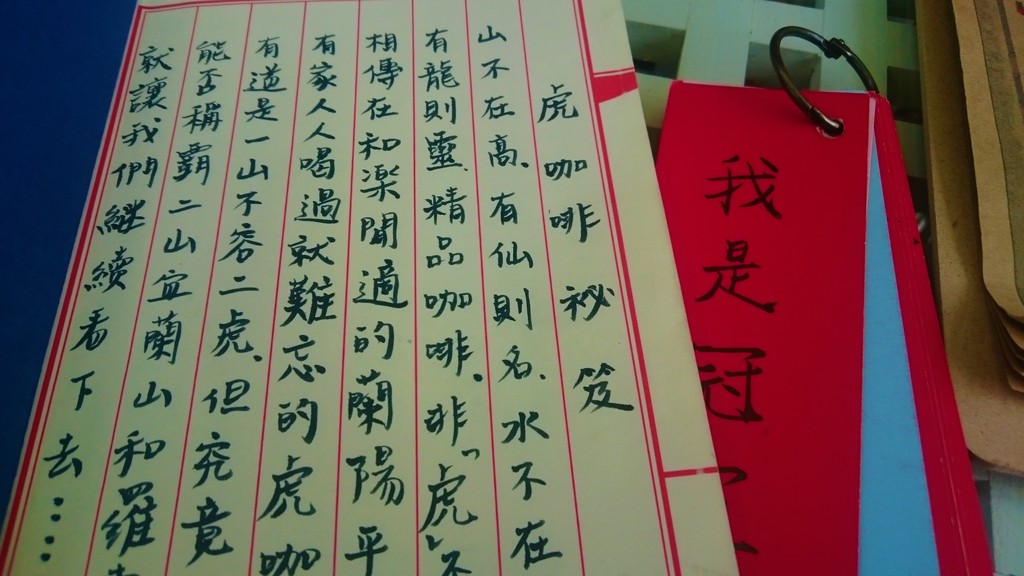 虎咖啡祕笈
山不在高.有仙則名.水不在
有龍則靈.精品咖啡.非"虎"不
相傳在和樂閒適的蘭陽平
有家人人喝過就難忘的虎咖
有道是一山不容二虎.但究竟
能否稱霸二山宜蘭山和羅
就讓我們繼續看下去……
我是冠